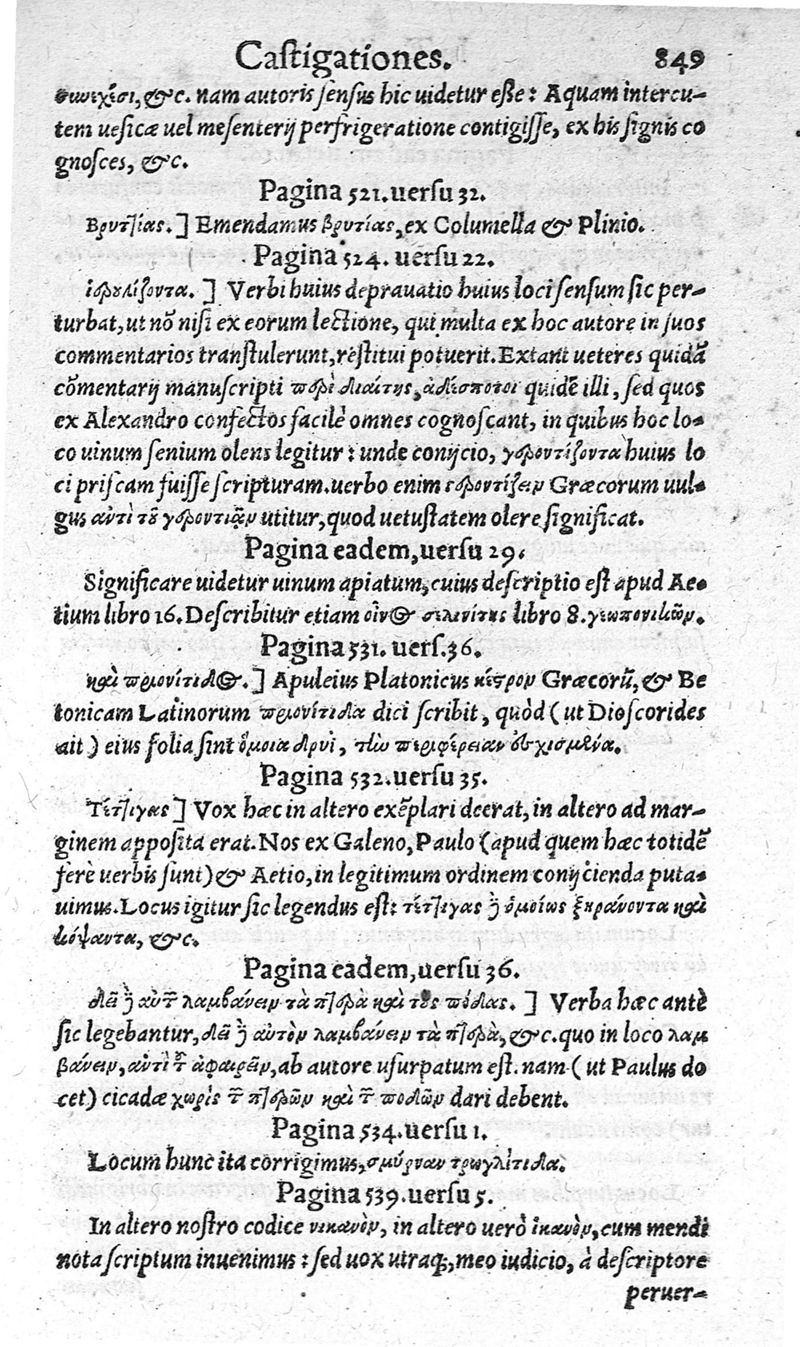 Castigationes. 849
σωεχέσι, &c. nam autoris sensus hic uidetur esse: Aquam intercu-
tem uesicæ uel mesenterij perfrigeratione contigisse, ex his signis co
gnosces, &c.
Pagina 521. uersu 32.
Βρυτζίας.] Emendamus βρυτίας, ex Columella & Plinio.
Pagina 524. uersu 22.
] Verbi huius deprauatio huius loci sensum sic per-
turbat, ut nō nisi ex eorum lectione, qui multa ex hoc autore in suos
commentarios transtulerunt, restitui potuerit. Extant ueteres quidā
cōmentarij manuscripti περὶ διαίτης, ἀδέσποτοι quidē illi, sed quos
ex Alexandro confectos facilè omnes cognoscant, in quibus hoc lo-
co uinum senium olens legitur: unde conijcio, γεροντίζοντα huius lo
ci priscam fuisse scripturam. uerbo enim γεροντίζειν Græcorum uul-
gus ἀντὶ τοῦ γεροντιᾷν utitur, quod uetustatem olere significat.
Pagina eadem, uersu 29.
Significare uidetur uinum apiatum, cuius descriptio est apud Ae-
tium libro 16. Describitur etiam οἶνος σελινίτης libro 8. γεωπονικῶν.
Pagina 531. uers. 36.
καὶ πριονίτιδος.] Apuleius Platonicus κέστρον Græcorū, & Be
tonicam Latinorum πριονίτιδα dici scribit, quòd (ut Dioscorides
ait) eius folia sint ὅμοια δρυὶ, τὴν περιφέρειαν ἐσχισμένα.
Pagina 532. uersu 35.
Τέτζιγας] Vox hæc in altero exēplari deerat, in altero ad mar-
ginem apposita erat. Nos ex Galeno, Paulo (apud quem hæc totidē
ferè uerbis sunt) & Aetio, in legitimum ordinem conijcienda puta-
uimus. Locus igitur sic legendus est: τέτζιγας δὲ ὁμοίως ξηράνοντα καὶ
κόψαντα, &c.
Pagina eadem, uersu 36.
δεῖ δὲ αὐτῶν λαμβάνειν τὰ πτερὰ καὶ τοὺς πόδας.] Verba hæc antè
sic legebantur, δεῖ δὲ αὐτὸν λαμβάνειν τὰ πτερὰ, &c. quo in loco λαμ
βάνειν, ἀντὶ τοῦ ἀφαιρεῖν, ab autore usurpatum est. nam (ut Paulus do
cet) cicadæ χωρὶς τῶν πτερῶν καὶ τῶν ποδῶν dari debent.
Pagina 534. uersu 1.
Locum hunc ita corrigimus, σμύρναν τρωγλίτιδα.
Pagina 539. uersu 5.
In altero nostro codice νικανὸν, in altero uerò ἱκανὸν, cum mendi
nota scriptum inuenimus: sed uox utraq;, meo iudicio, à descriptore
peruer-